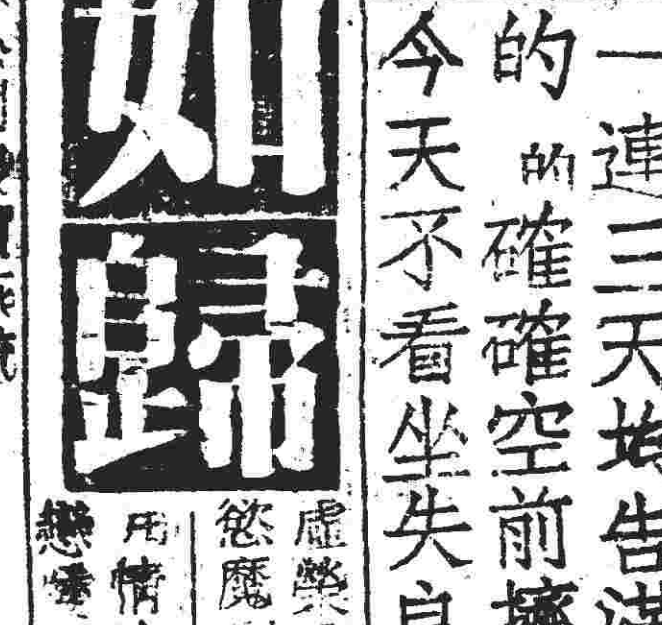 一連三天均告滿
的的確確空前擠
今天不看坐失良
如歸
虛榮
慾魔
用情
戀愛